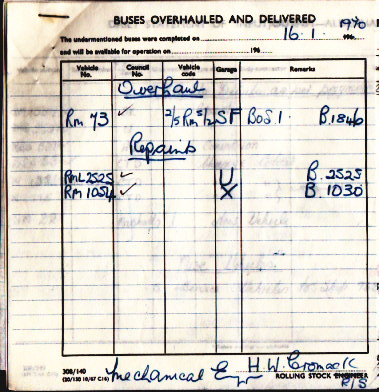 BUSES OVERHAULED AND DELIVERED
1970
The undermentioned buses were completed on 16.1. 196
and will be available for operation on 196
Vehicle No. Council No. Vehicle code Garage Remarks
Overhaul
Rm 73 ✓ 2/5 Rm 5/2 SF BoS 1. B.1846
Repaints
RmL 2525 ✓ U B.2525
Rm 1054 ✓ X B.1030
300/140
(20/150 10/67 C14)
Mechanical H.W. Cromack
ROLLING STOCK ENGINEER
R/S